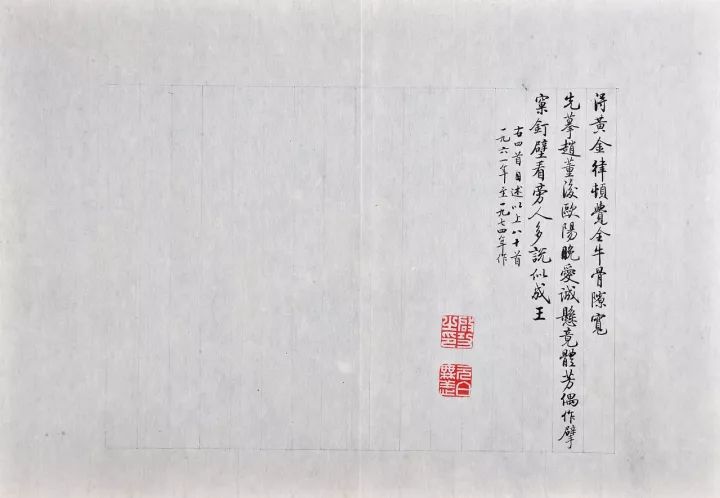 得黃金律頓覺全牛骨隙寬
先摹趙董後歐陽晚愛誠懸竟體芳偶作擘
窠釘壁看旁人多說似成王
右四首自述以上八十首
一九六一年至一九七四年作
啟功之印
元白